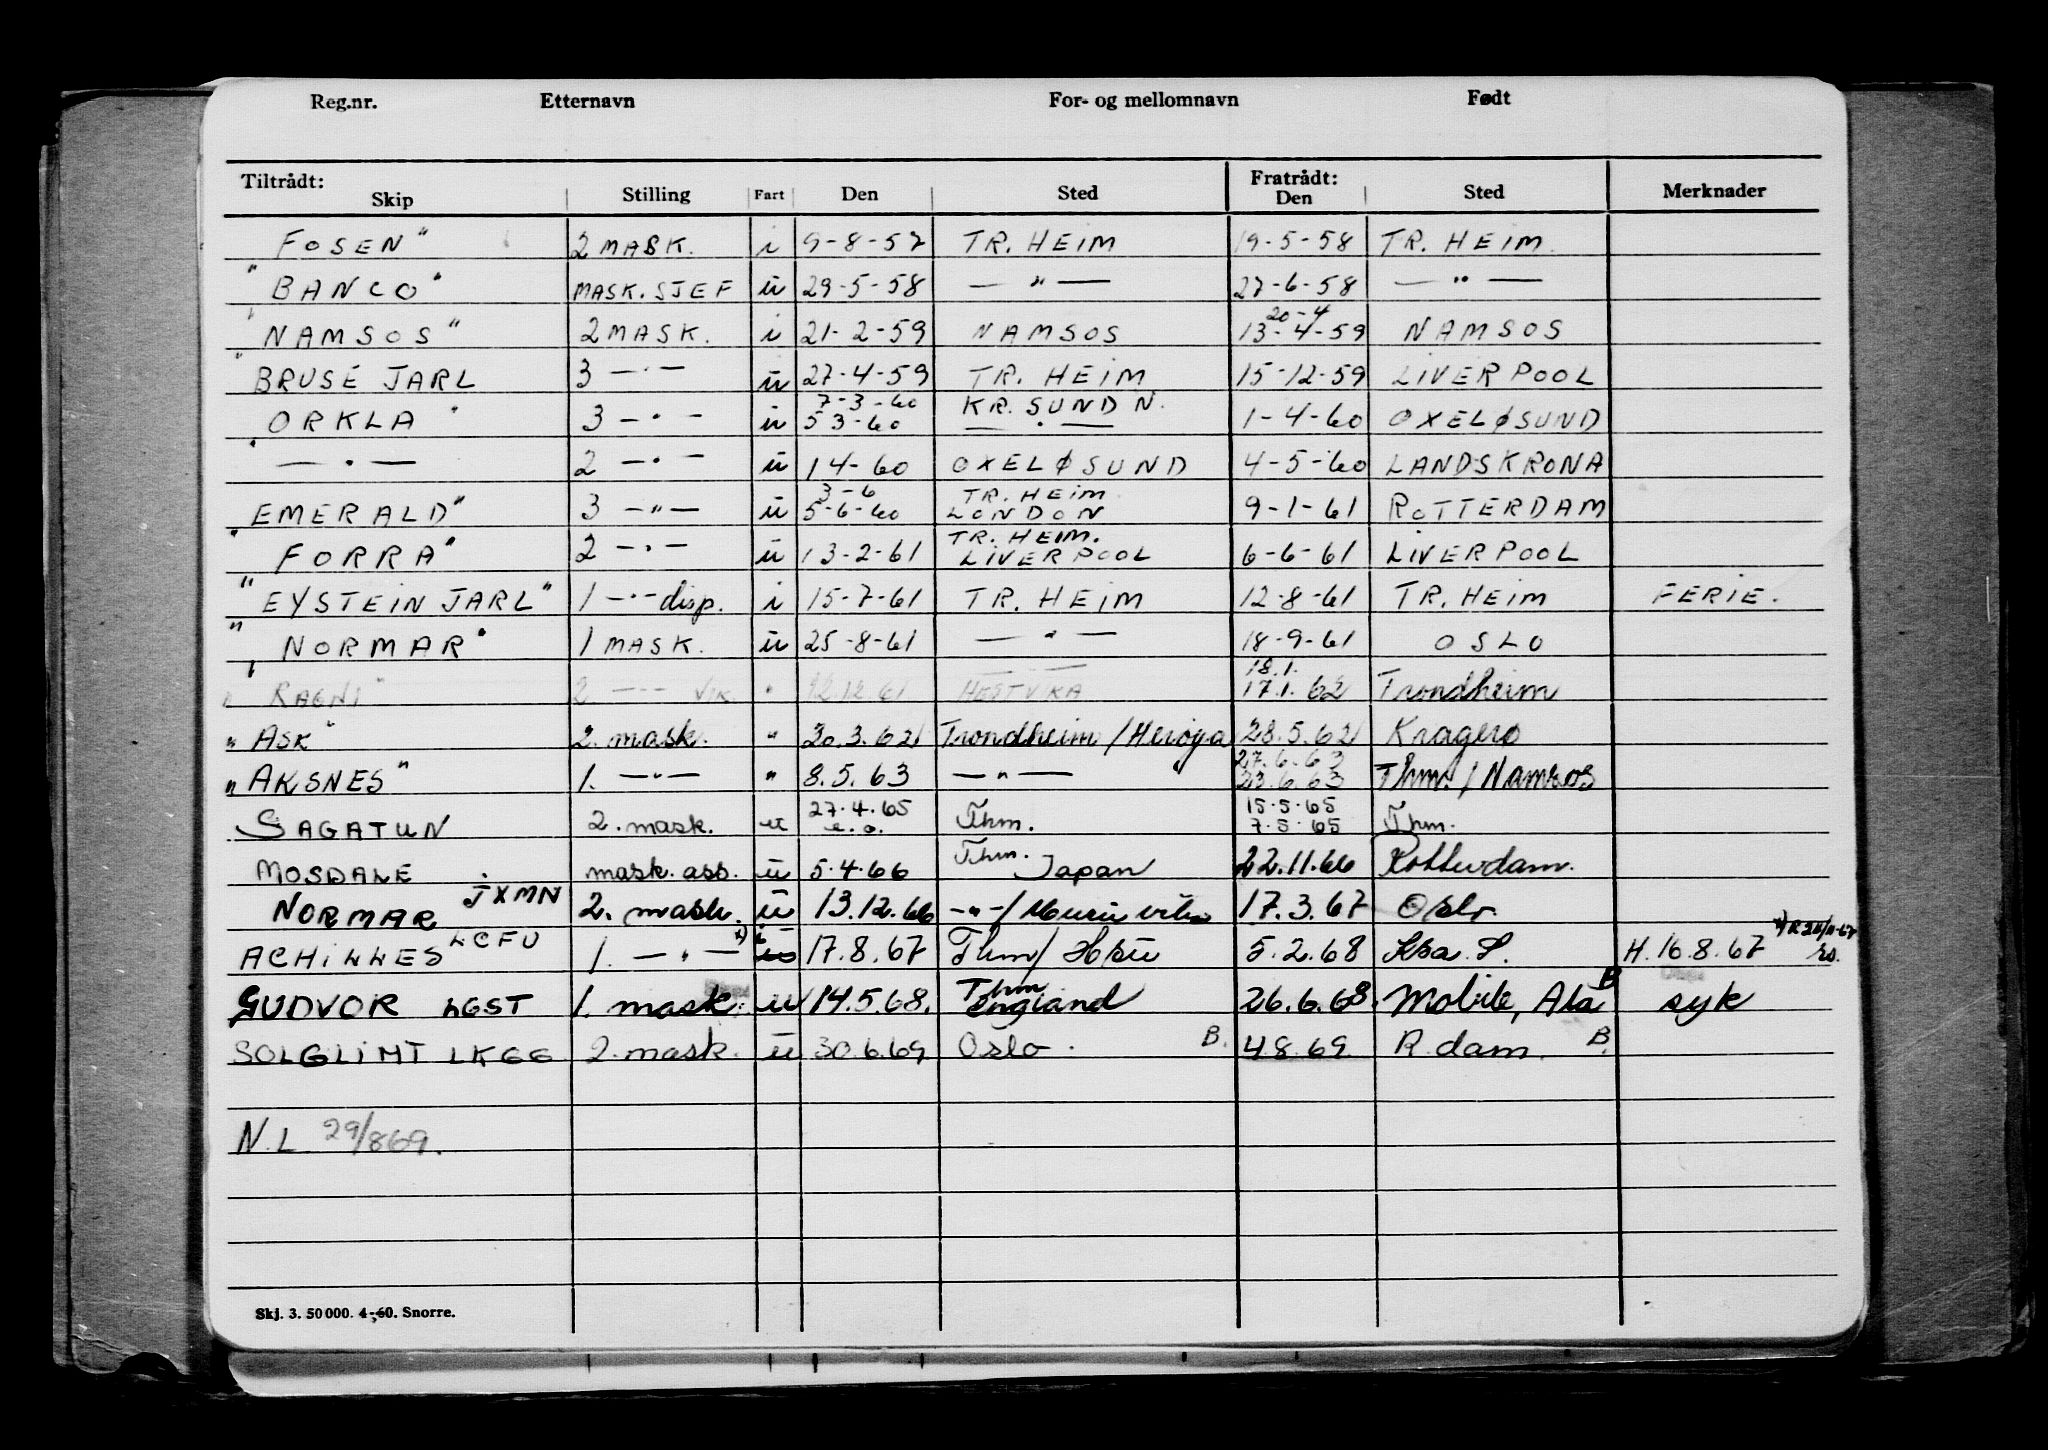 Reg.nr. Etternavn For- og mellomnavn Født
Tiltrådt: Fratrådt:
Skip Stilling Fart Den Sted Den Sted Merknader
FOSEN" 2 MASK. i 9-8-57 TR. HEIM 19-5-58 TR. HEIM.
"BANCO" MASK. SJEF u 29-5-58 — " — 27-6-58 — " —
20-4
"NAMSOS" 2 MASK. i 21-2-59 NAMSOS 13-4-59 NAMSOS
"BRUSE JARL 3 — · — u 27-4-59 TR. HEIM 15-12-59 LIVERPOOL
7-3-60 KR. SUND N.
ORKLA" 3 — · — u 5 3-60 — · — 1-4-60 OXELØSUND
" — · — 2 — · — u 14-60 OXELØSUND 4-5-60 LANDSKRONA
3-6 TR. HEIM
EMERALD" 3 — " — u 5-6-60 LONDON 9-1-61 ROTTERDAM
TR. HEIM.
"FORRA" 2 — · — u 13-2-61 LIVERPOOL 6-6-61 LIVERPOOL
"EYSTEIN JARL" 1 — · — disp. i 15-7-61 TR. HEIM 12-8-61 TR. HEIM FERIE.
"NORMAR" 1 MASK. u 25-8-61 — " — 18-9-61 OSLO
18.1.
"RAGNI" 2 — · — Vik. " 12.12.61 HESTVIKA 17.1.62 Trondheim
"ASK" 2. mask. " 30.3.62 Trondheim / Herøya 28.5.62 Kragerø
27.6.63
"AKSNES" 1. — " — " 8.5.63 — " — 23.6.63 Thm. / Namsos
27.4.65 15.5.65
SAGATUN 2. mask. u e.o. Thm. 7.5.65 Thm.
Thm.
MOSDALE mask. ass. u 5.4.66 Japan 22.11.66 Rotterdam.
NORMAR JXMN 2. mask. u 13.12.66 — " — / 17.3.67 Oslo
ACHILLES LCFU 1. — " — x) 17.8.67 Thm / 5.2.68 H. 16.8.67
Thm
GUDVOR LGST 1. mask. u 14.5.68. England 26.6.68. Mobile, Ala B syk
SOLGLIMT LKGG 2. mask. u 30.6.69 Oslo. B. 4.8.69 R.dam. B.
N.L. 29/869.
Skj. 3. 50 000. 4-60. Snorre.